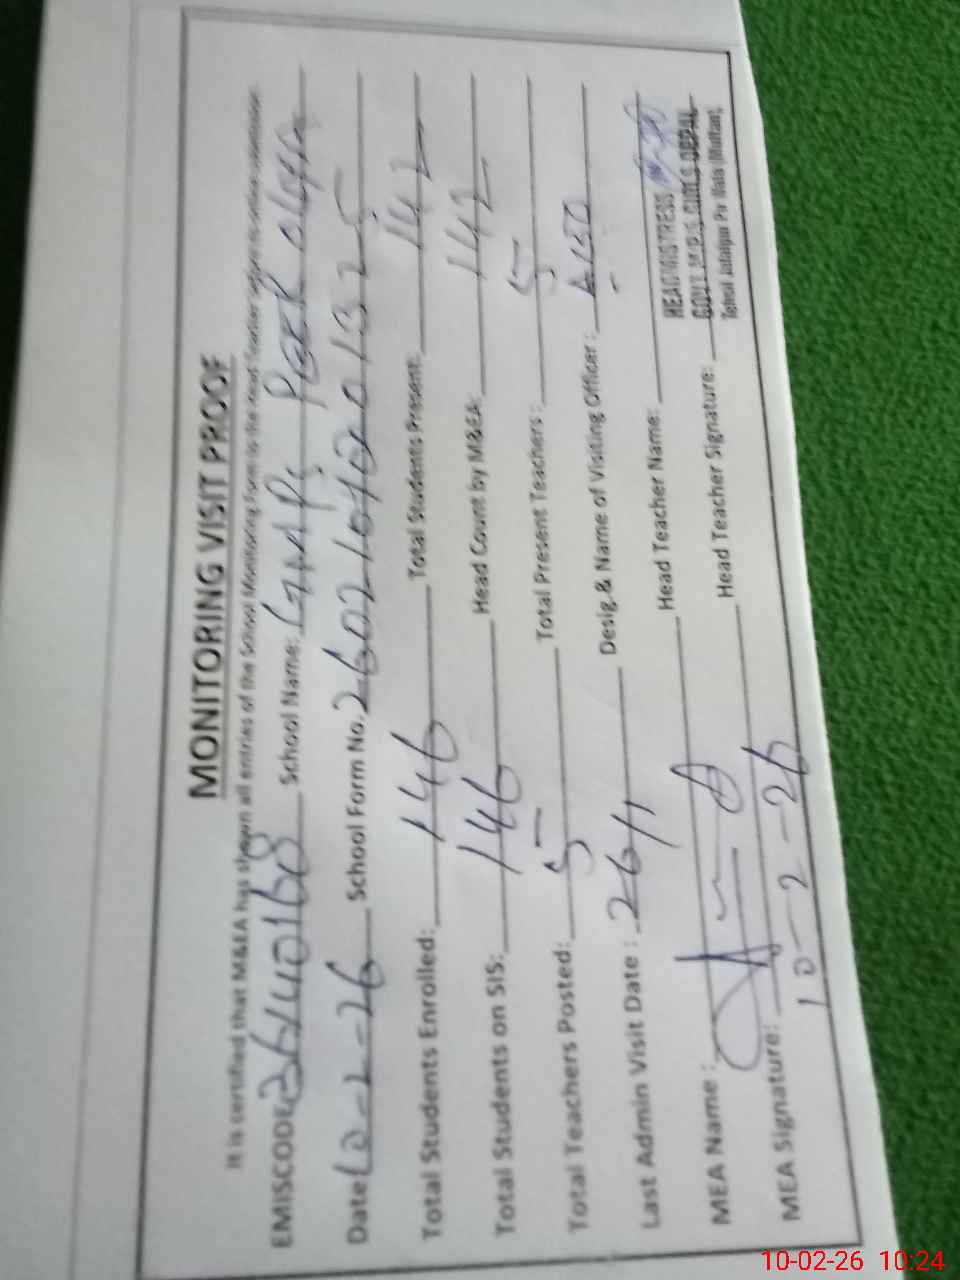 MONITORING VISIT PROOF
It is certified that M&EA has shown all entries of the School Monitoring Form to the Head Teacher before
EMISCODE 36140160 School Name: GMPS
Date 10-2-26 School Form No. 26021010
Total Students Enrolled: 146 Total Students Present: 142
Total Students on SIS: 146 Head Count by M&EA: 142
Total Teachers Posted: 5 Total Present Teachers: 5
Last Admin Visit Date: 26/1 Desig.& Name of Visiting Officer:
MEA Name: Head Teacher Name:
MEA Signature: Head Teacher Signature:
10-2-26
HEADMISTRESS
GOVT. GIRLS
Tehsil Jalalpur Pir Wala (Multan)
10-02-26 10:24